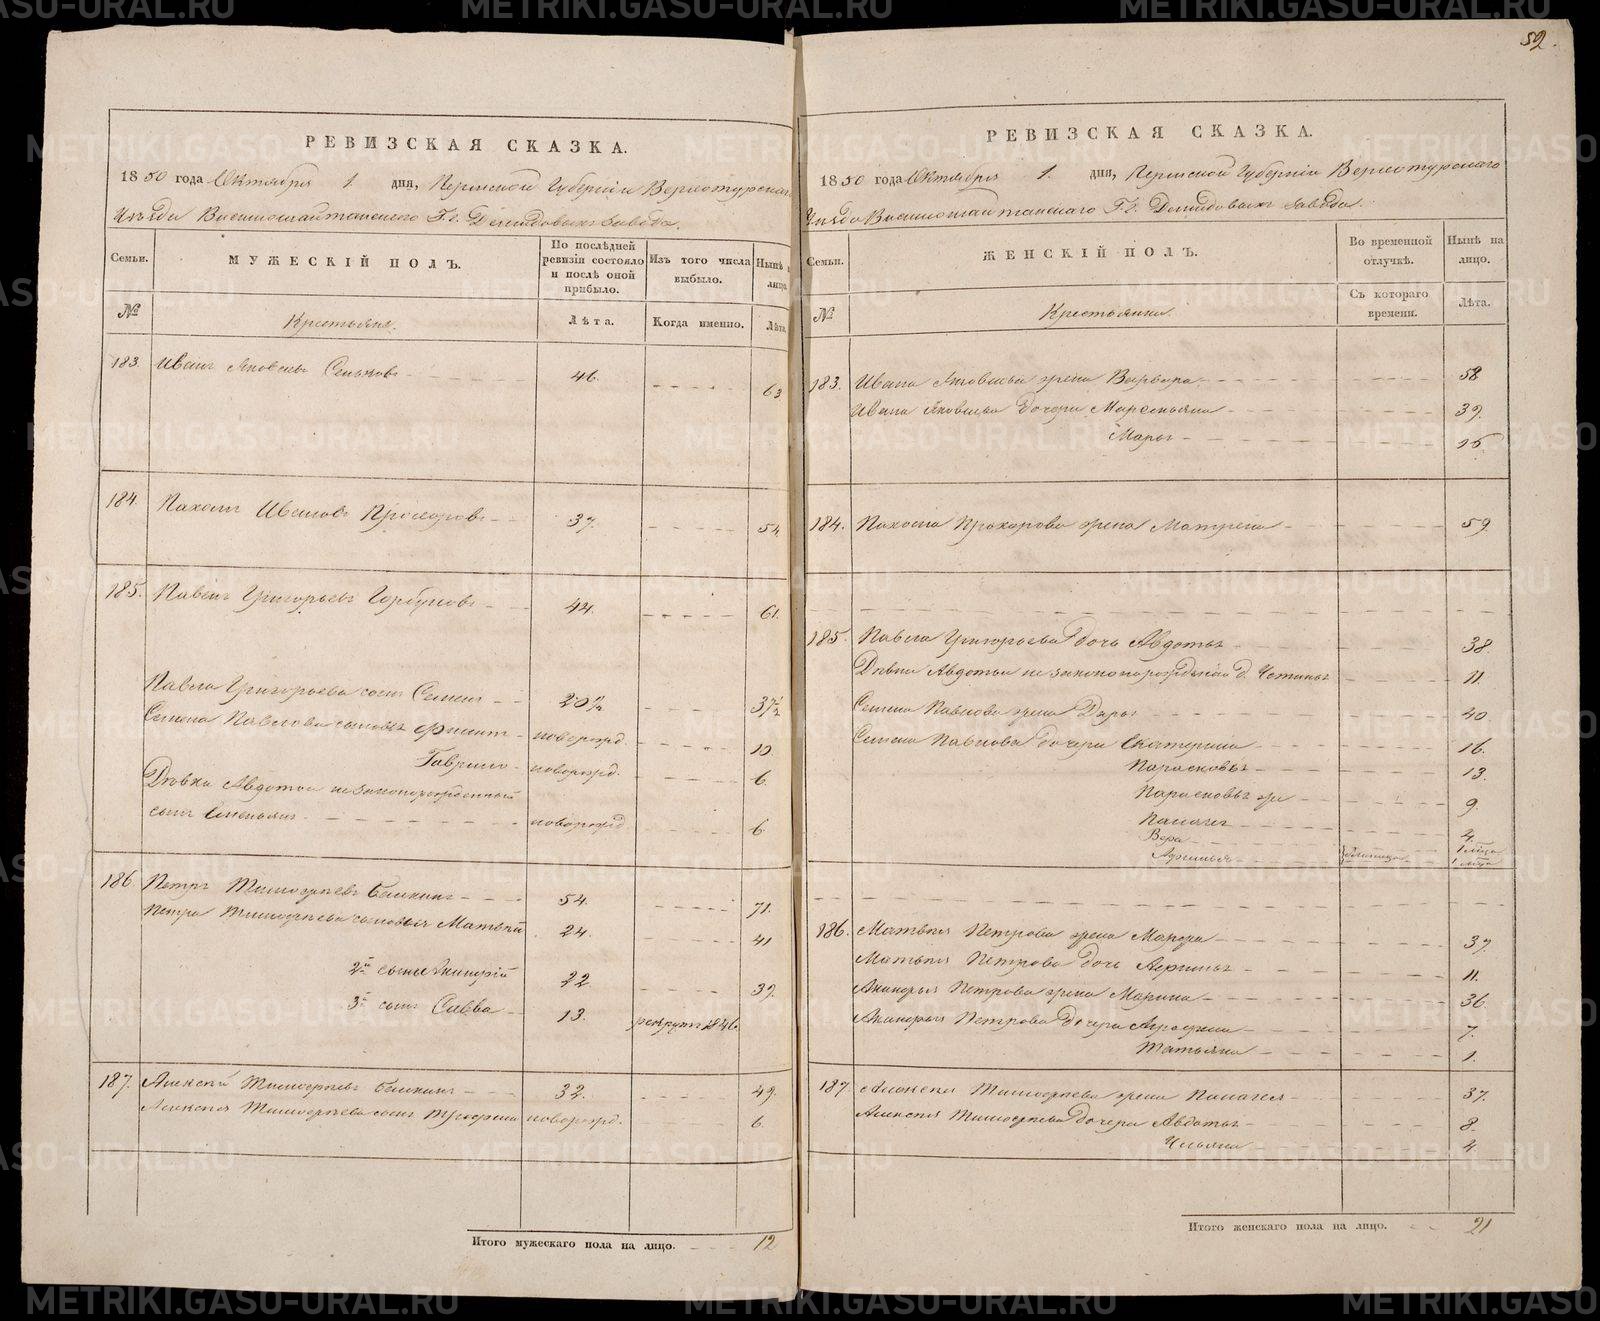 52.
РЕВИЗСКАЯ СКАЗКА.
1850 года Октября 1. дня, Пермской Губернiи Верхотурскаго
Уѣзда Висимошайтанскаго Гг. Демидовыхъ завода.
Семьи.
МУЖЕСКIЙ ПОЛЪ.
По послѣдней ревизiи состояло и послѣ оной прибыло.
Изъ того числа выбыло.
Нынѣ на лицо.
№
Крестьяне.
Лѣта.
Когда именно.
Лѣта.
183. Иванъ Яковлевъ Сеньковъ 46. 63
184. Пахомъ Ивановъ Прохоровъ 37. 54
185. Павелъ Григорьевъ Горбуновъ 44. 61.
Павла Григорьева сынъ Семенъ 20 1/2 37 1/2
Семена Павлова сыновья новорожд. 10.
Гаврило новорожд. 6.
Дѣвки Авдотьи незаконорожденный
сынъ новорожд. 6
186. Петръ Тимофѣевъ 54. 71.
Петра Тимофѣева сыновья Матвѣй 24. 41
2й сынъ 22. 39.
3й сынъ Савва 13. рекрутъ 1846.
187. Алексѣй Тимофѣевъ 32. 49.
Алексѣя Тимофѣева сынъ Трофимъ новорожд. 6.
Итого мужескаго пола на лицо. 12
РЕВИЗСКАЯ СКАЗКА.
1850 года Октября 1. дня, Пермской Губернiи Верхотурскаго
Уѣзда Висимошайтанскаго Гг. Демидовыхъ завода.
Семьи.
ЖЕНСКIЙ ПОЛЪ.
Во временной отлучкѣ.
Нынѣ на лицо.
№
Крестьянки.
Съ котораго времени.
Лѣта.
183. Ивана Яковлева жена Варвара 58
Ивана Яковлева дочери Маремьяна 39.
Марья 26
184. Пахома Прохорова жена Матрена 59.
185. Павла Григорьева дочь Авдотья 38.
Дѣвки Авдотьи незаконорожденная д. Устинья 11.
Семена Павлова жена Дарья 40
Семена Павлова дочери Екатерина 16.
Парасковья 13.
Парасковья же 9.
Палагея
Вера 4.
близнецы 1 мѣся
1 мѣся
186. Матвѣя Петрова жена Марфа 39.
Матвѣя Петрова дочь 11.
Петрова жена Марина 36
Петрова дочери 7.
Татьяна 1.
187. Алексѣя Тимофѣева жена Палагея 37.
Алексѣя Тимофѣева дочери Авдотья 8.
Ульяна 4
Итого женскаго пола на лицо. 21
METRIKI.GASO-URAL.RU